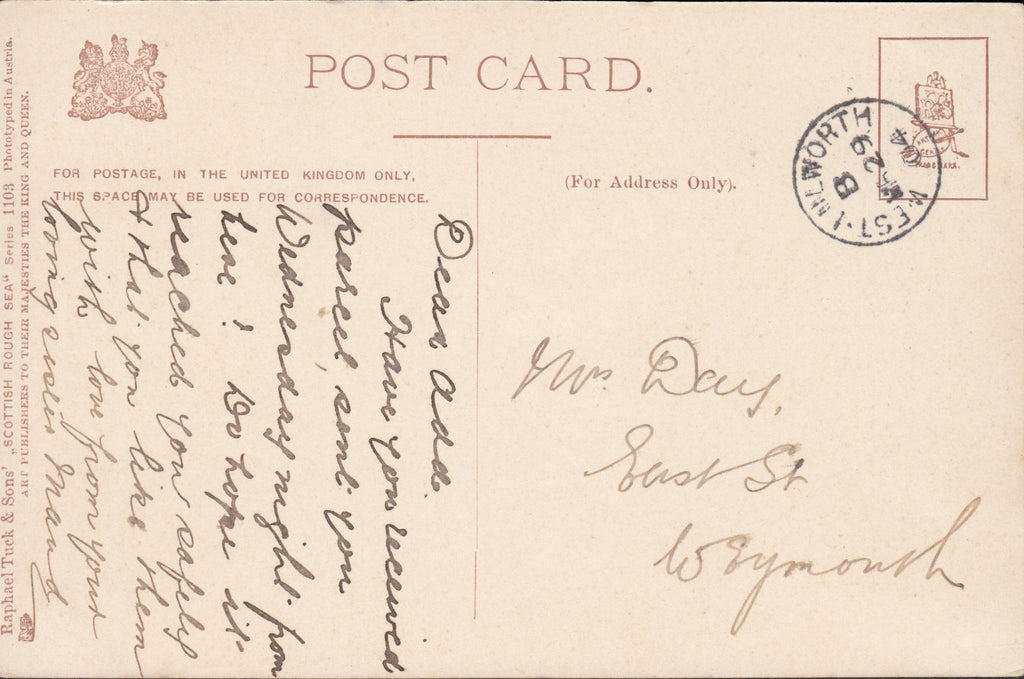 POST CARD.
FOR POSTAGE, IN THE UNITED KINGDOM ONLY,
THIS SPACE MAY BE USED FOR CORRESPONDENCE.
(For Address Only).
WEST-LULWORTH
B
29
04
TRADE MARK.
Raphael Tuck & Sons' „SCOTTISH ROUGH SEA" Series 1103 Phototyped in Austria.
ART PUBLISHERS TO THEIR MAJESTIES THE KING AND QUEEN.
Dear Ada.
Have you received
parcel, sent you
Wednesday night from
here? Do hope it
reached you safely
& that you like them
with love from your
loving sister Maud
Mrs Day,
East St
Weymouth